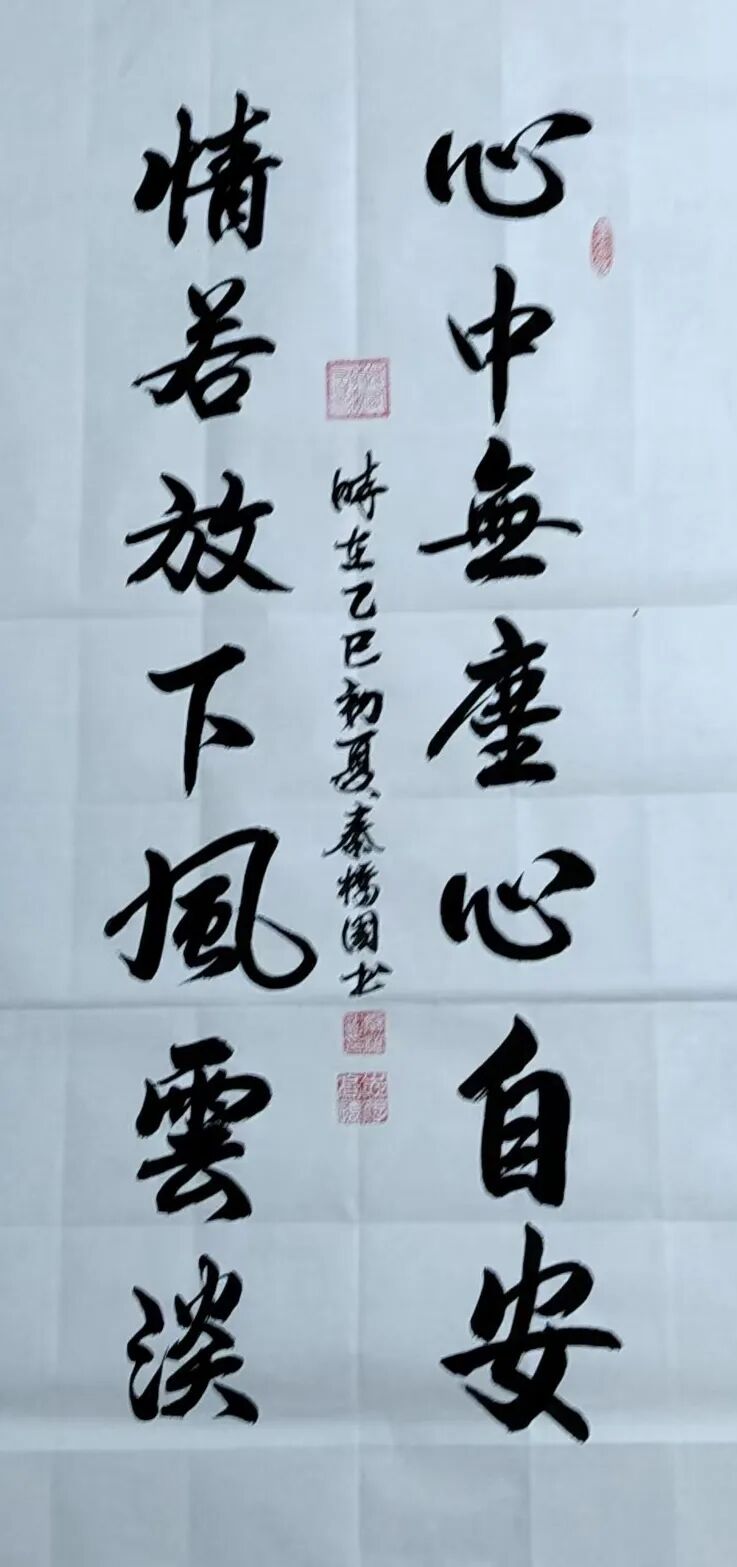 心中無塵心自安
情若放下風雲淡
時在乙巳初夏秦橋國书